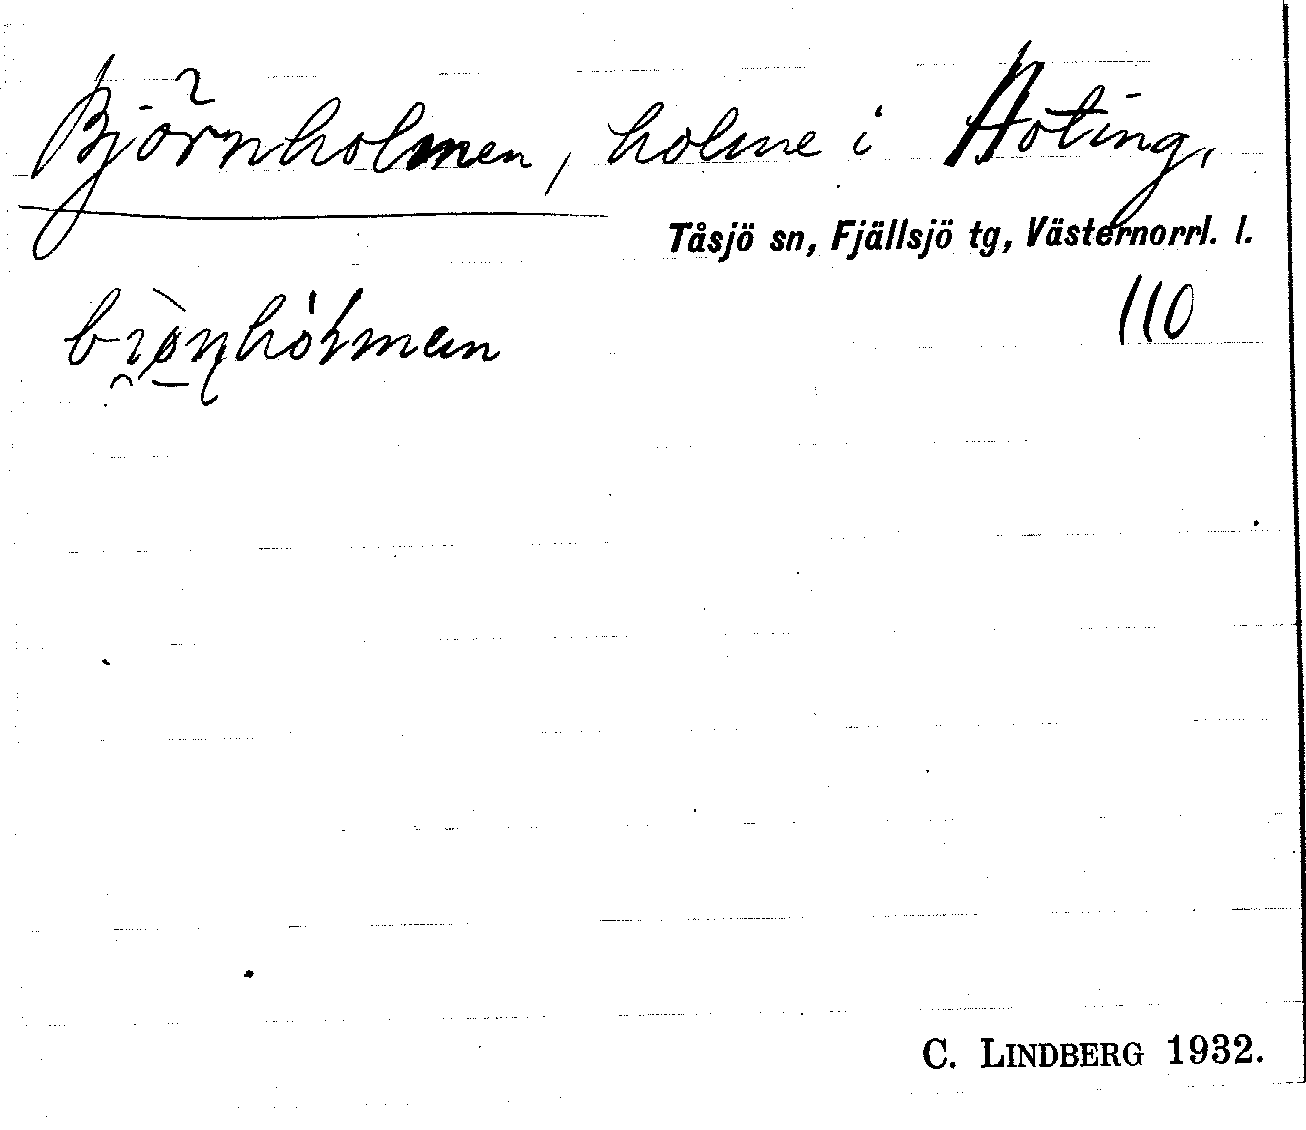 Björnholmen, holme i Hoting,
Tåsjö sn, Fjällsjö tg, Västernorrl. l.
110
C. LINDBERG 1932.